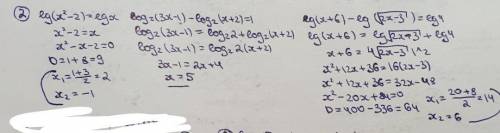 ② lg(x²-2)=lgx
x²-2=x
x²-x-2=0
D=1+8=9
x₁=1+3/2=2
x₂=-1
log₂(3x-1)-log₂(x+2)=1
log₂(3x-1)=log₂2+log₂(x+2)
log₂(3x-1)=log₂2(x+2)
3x-1=2x+4
x=5
lg(x+6)-lg√2x-3=lg4
lg(x+6)=lg√2x-3+lg4
x+6=4√2x-3 |^2
x²+12x+36=16(2x-3)
x²+12x+36=32x-48
x²-20x+84=0
D=400-336=64
x₁=20+8/2=14
x₂=6